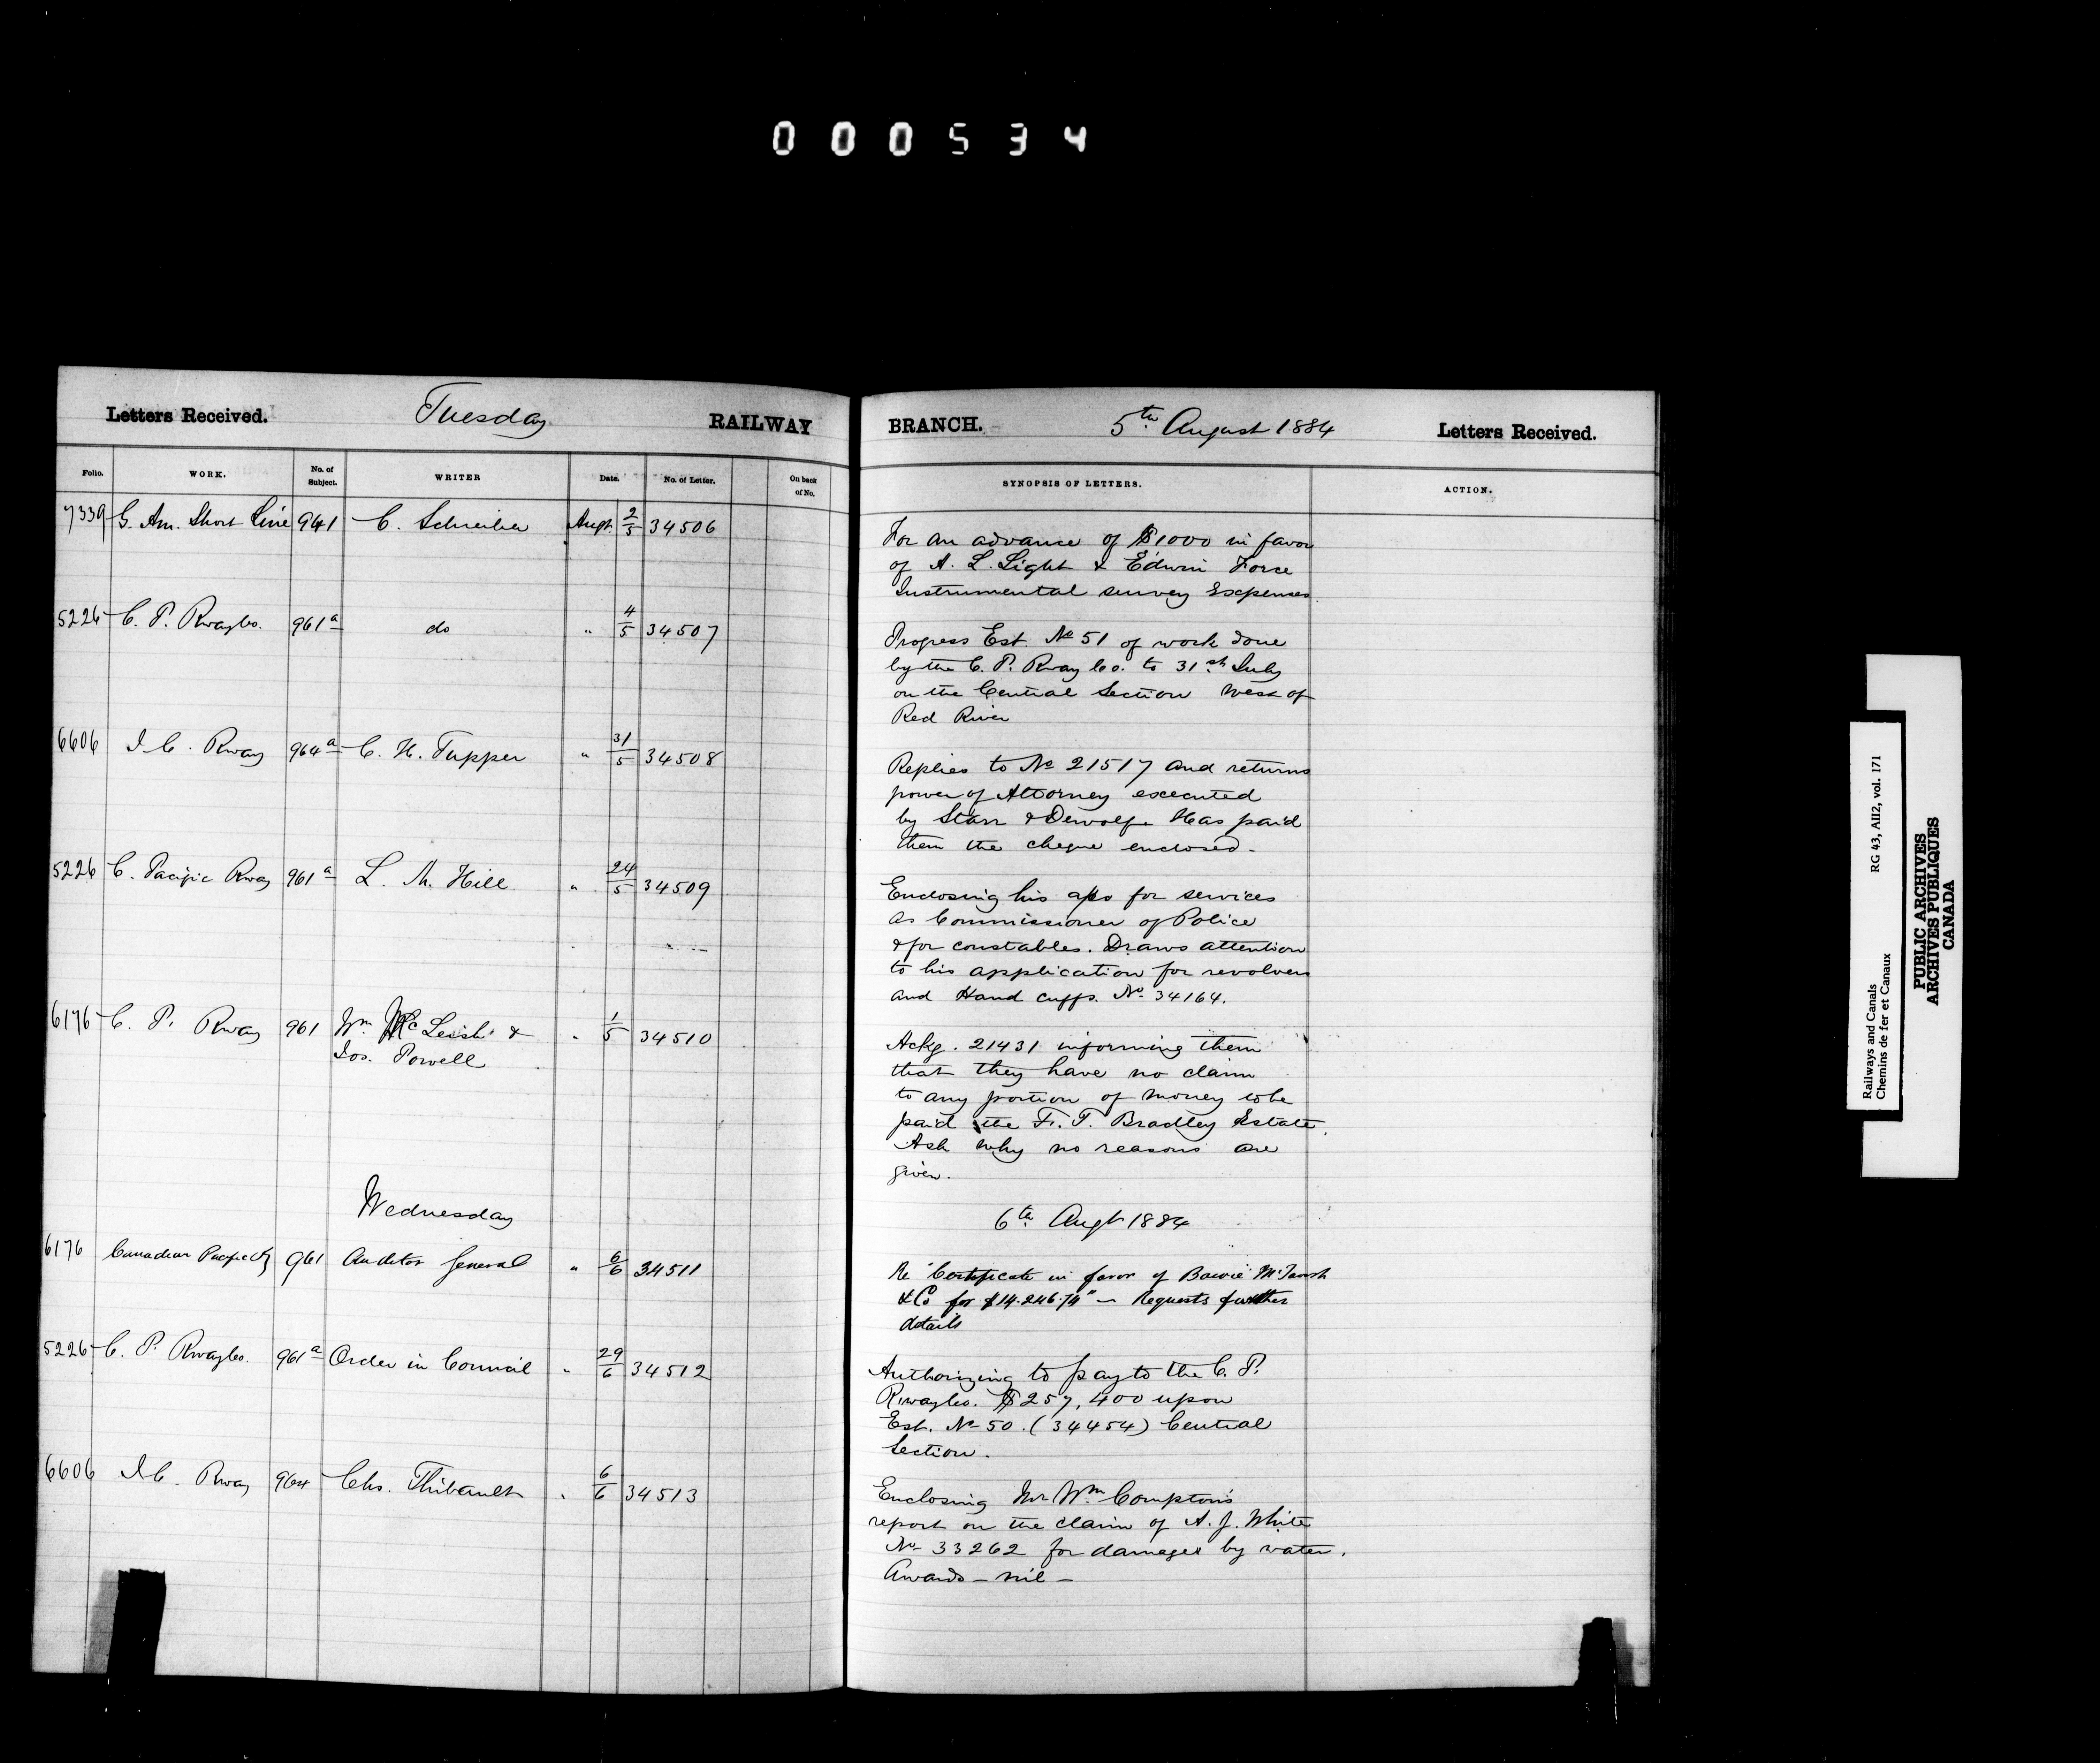 000534
Letters Received. Tuesday RAILWAY BRANCH. 5th August 1884 Letters Received.
Folio. WORK. No. of Subject. WRITER Date. No. of Letter. On back of No. SYNOPSIS OF LETTERS. ACTION.
7339 G. Am. Short Line 941 C. Schreiber Augt. 2/5 34506
For an advance of $1000 in favor
of A. L. Light & Edwin Force
Instrumental survey Expenses.
5226 C. P. Rway Co. 961a do " 4/5 34507
Progress Est. No 51 of work done
by the C. P. Rway Co. to 31st July
on the Central Section West of
Red River
6606 I. C. Rway 964a C. H. Tupper " 31/5 34508
Replies to No 21517 and returns
power of Attorney executed
by Starr & Dewolfe Has paid
them the cheque enclosed.
5226 C. Pacific Rway 961a L. M. Hill " 24/5 34509
Enclosing his a/cs for services
as Commissioner of Police
& for constables. Draws attention
to his application for revolvers
and Hand cuffs. No. 34164.
6176 C. P. Rway 961 Wm McLeish & " 1/5 34510
Jos. Powell
Ackg. 21431 informing them
that they have no claim
to any portion of money to be
paid the F. T. Bradley Estate.
Ask why no reasons are
given.
Wednesday 6th Augt 1884
6176 Canadian Pacific Ry 961 Auditor General " 6/6 34511
Re "Certificate in favor of Bowie McTavish
& Co for $14.246.74" - Requests further
details
5226 C. P. Rway Co. 961a Order in Council " 29/6 34512
Authorizing to pay to the C. P.
Rway Co. $257,400 upon
Est. No 50. (34454) Central
Section.
6606 I C. Rway 964 Chs. Thibault " 6/6 34513
Enclosing Mr Wm. Compton's
report on the claim of A. J. White
No 33262 for damages by water.
Awards - nil -
Railways and Canals RG 43, AII2, vol. 171
Chemins de fer et Canaux
PUBLIC ARCHIVES
ARCHIVES PUBLIQUES
CANADA